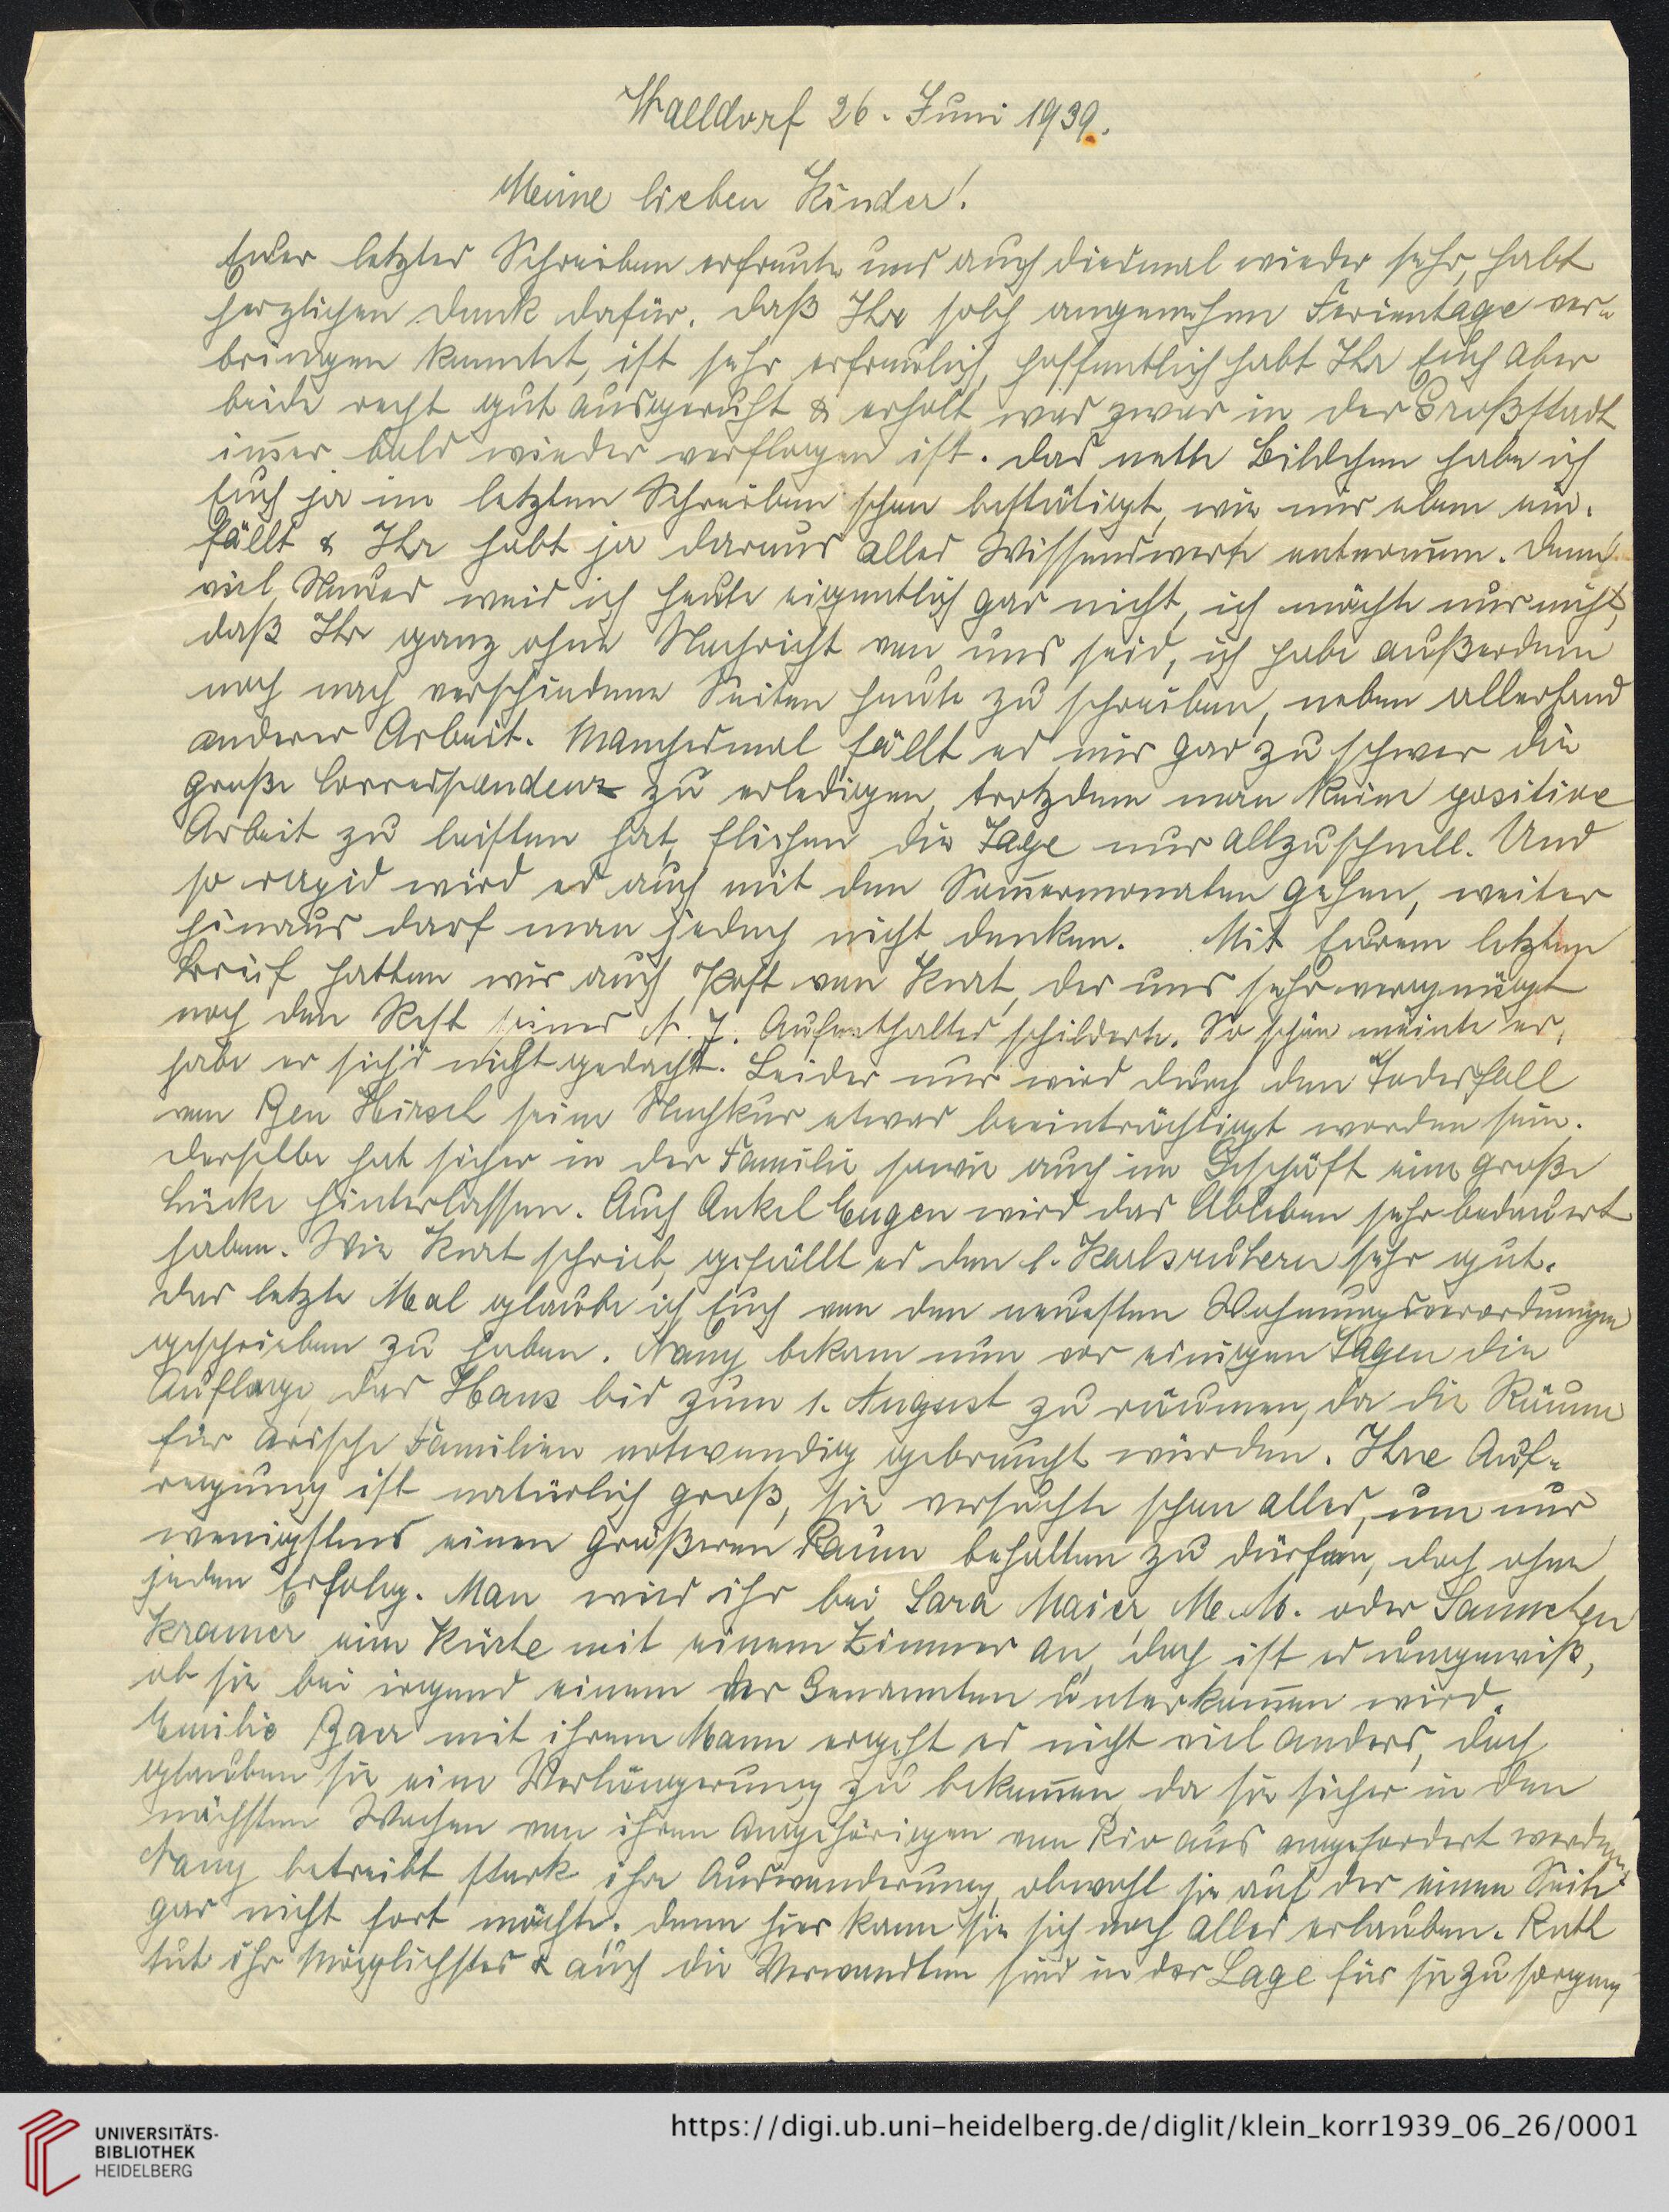 Walldorf 26. Juni 1939.
Meine lieben Kinder!
Euer letztes Schreiben erfreute uns auch diesmal wieder sehr, habt
herzlichen Dank dafür. Daß Ihr solch angenehme Ferientage ver-
bringen konntet, ist sehr erfreulich, hoffentlich habt Ihr Euch aber
beide recht gut ausgeruht & erholt, was zwar in der Großstadt
im̄er bald wieder verflogen ist. Das nette Bildchen habe ich
Euch ja im letzten Schreiben schon bestätigt, wie mir eben ein-
fällt & Ihr habt ja daraus alles Wissenswerte entnom̄en. Denn
viel Neues weis ich heute eigentlich gar nicht, ich möchte nur nicht,
daß Ihr ganz ohne Nachricht von uns seid, ich habe außerdem
noch nach verschiedenen Seiten heute zu schreiben, neben allerhand
anderer Arbeit. Manchesmal fällt es mir gar zu schwer die
große Correspondenz zu erledigen, trotzdem man keine positive
Arbeit zu leisten hat, fliehen die Tage nur allzuschnell. Und
so rapid wird es auch mit den Som̄ermonaten gehen, weiter
hinaus darf man jedoch nicht denken. Mit Eurem letzten
Brief hatten wir auch Post von Kurt, der uns sehr vergnügt
noch den Rest seines N. J. Aufenthaltes schilderte. So schön meinte er,
habe er sich's nicht gedacht. Leider nur wird durch den Todesfall
von Ben Hirsch seine Nachkur etwas beeinträchtigt worden sein.
Derselbe hat sicher in der Familie sowie auch im Geschäft eine große
Lücke hinterlassen. Auch Onkel Eugen wird das Ableben sehr bedauert
haben. Wie Kurt schrieb, gefällt es den l. Karlsruhern sehr gut.
Das letzte Mal glaube ich Euch von den neuesten Wohnungsverordnungen
geschrieben zu haben. Nany bekam nun vor einigen Tagen die
Auflage, das Haus bis zum 1. August zu räumen, da die Räume
für arische Familien notwendig gebraucht würden. Ihre Auf-
regung ist natürlich groß, sie versuchte schon alles, um nur
wenigstens einen größeren Raum behalten zu dürfen, doch ohne
jeden Erfolg. Man wies ihr bei Sara Maier, M. M. oder
Kramer eine Küche mit einem Zimmer an, doch ist es ungewiß,
ob sie bei irgend einem der Genannten unterkom̄en wird.
Emilie Baer mit ihrem Mann ergeht es nicht viel anders, doch
glauben sie eine Verlängerung zu bekom̄en, da sie sicher in den
nächsten Wochen von ihren Angehörigen von Rio aus angefordert werden.
Nany betreibt stark ihre Auswanderung, obwohl sie auf der einen Seite
gar nicht fort möchte, denn hier kann sie sich noch alles erlauben. Ruth
tut ihr Möglichstes & auch die Verwandten sind in der Lage für sie zu sorgen,
UNIVERSITÄTS-
BIBLIOTHEK
HEIDELBERG
https://digi.ub.uni-heidelberg.de/diglit/klein_korr1939_06_26/0001